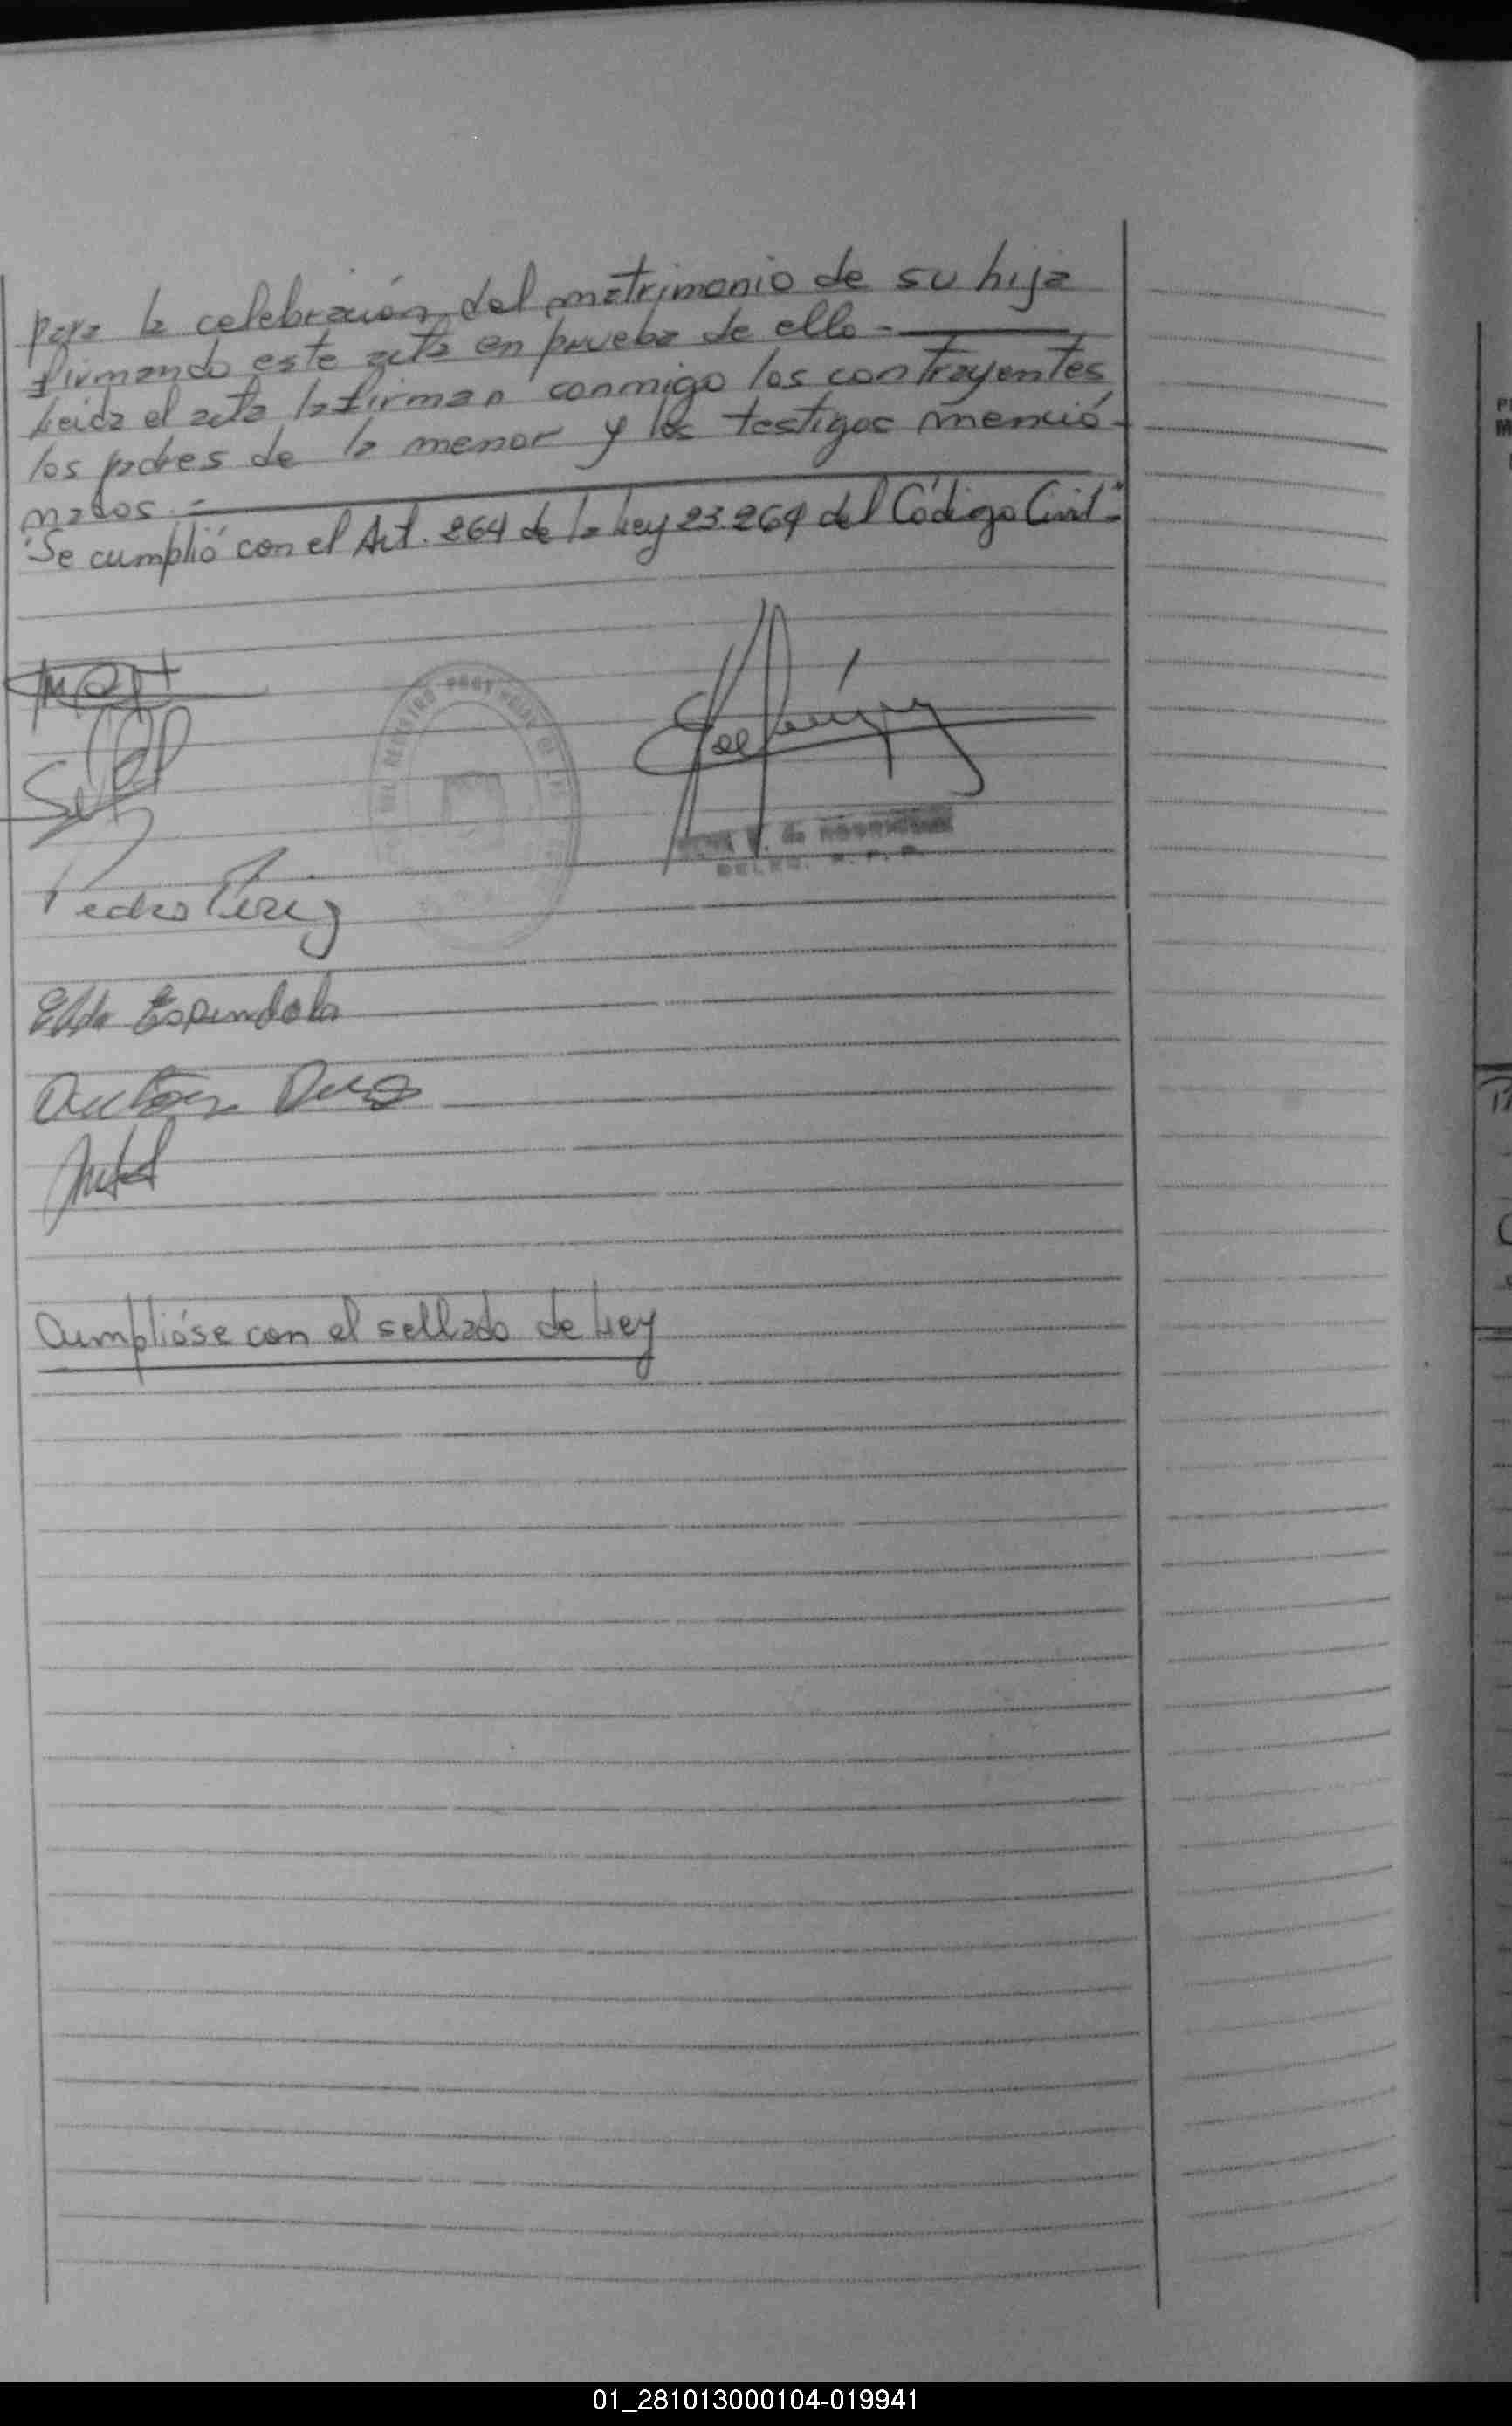 para la celebración del matrimonio de su hija
firmando este acta en prueba de ello -
Leida el acta la firman conmigo los contrayentes
los padres de la menor y los testigos mencio-
nados.-
"Se cumplió con el Art. 264 de la Ley 23.264 del Código Civil"-
Pedro Pérez
Elda Espindola
Cumplióse con el sellado de Ley
01_281013000104-019941